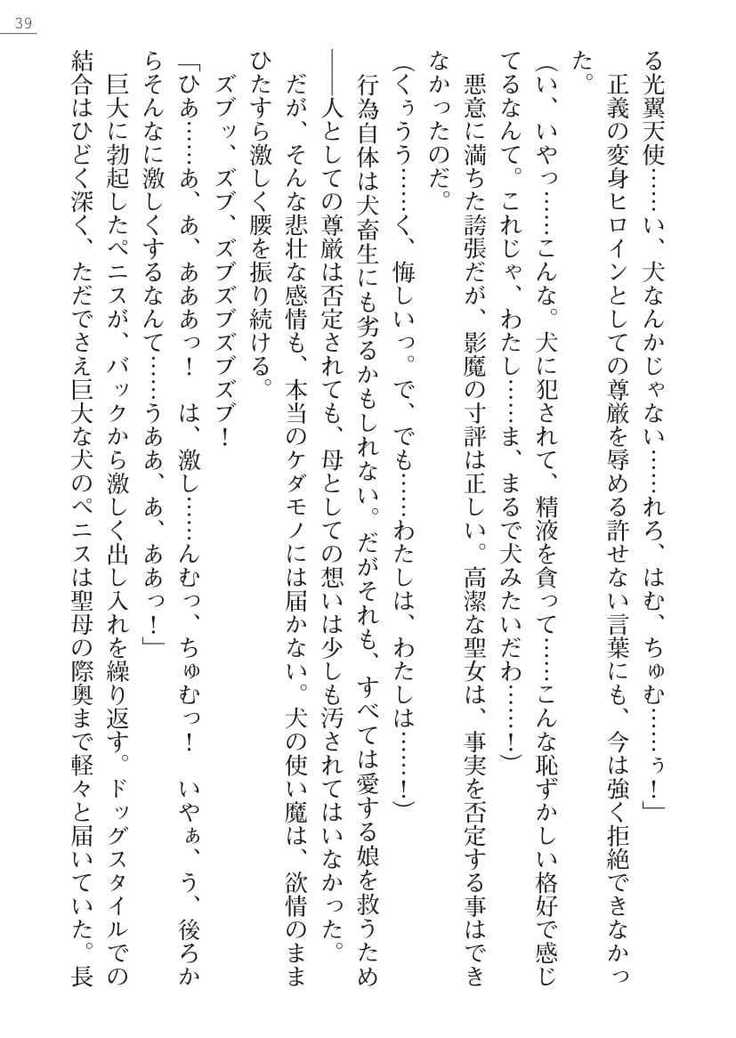 39
る光翼天使……い、犬なんかじゃない……れろ、はむ、ちゅむ……ぅ！」
正義の変身ヒロインとしての尊厳を辱める許せない言葉にも、今は強く拒絶できなかっ
た。
（い、いやっ……こんな。犬に犯されて、精液を貪って……こんな恥ずかしい格好で感じ
てるなんて。これじゃ、わたし……ま、まるで犬みたいだわ……！）
悪意に満ちた誇張だが、影魔の寸評は正しい。高潔な聖女は、事実を否定する事はでき
なかったのだ。
（くぅうう……く、悔しいっ。で、でも……わたしは、わたしは……！）
行為自体は犬畜生にも劣るかもしれない。だがそれも、すべては愛する娘を救うため
――人としての尊厳は否定されても、母としての想いは少しも汚されてはいなかった。
だが、そんな悲壮な感情も、本当のケダモノには届かない。犬の使い魔は、欲情のまま
ひたすら激しく腰を振り続ける。
ズブッ、ズブ、ズブズブズブズブ！
「ひあ……あ、あ、あああっ！　は、激し……んむっ、ちゅむっ！　いやぁ、う、後ろか
らそんなに激しくするなんて……うああ、あ、ああっ！」
巨大に勃起したペニスが、バックから激しく出し入れを繰り返す。ドッグスタイルでの
結合はひどく深く、ただでさえ巨大な犬のペニスは聖母の際奥まで軽々と届いていた。長